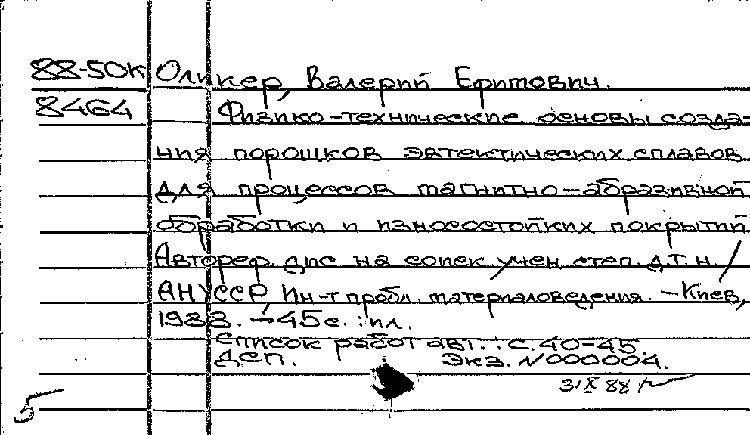 88-50К Оликер, Валерий Ефимович.
8464 Физико-технические основы созда-
ния порошков эвтектических сплавов
для процессов магнитно-абразивной
обработки и износостойких покрытий
Автореф. дис на соиск учен степ. д.т.н. /
АН УССР, Ин-т пробл. материаловедения. - Киев,
1988. - 45 с. : ил.
Список работ авт.: с. 40-45
ДСП. Экз. N000004.
31 X 88
5